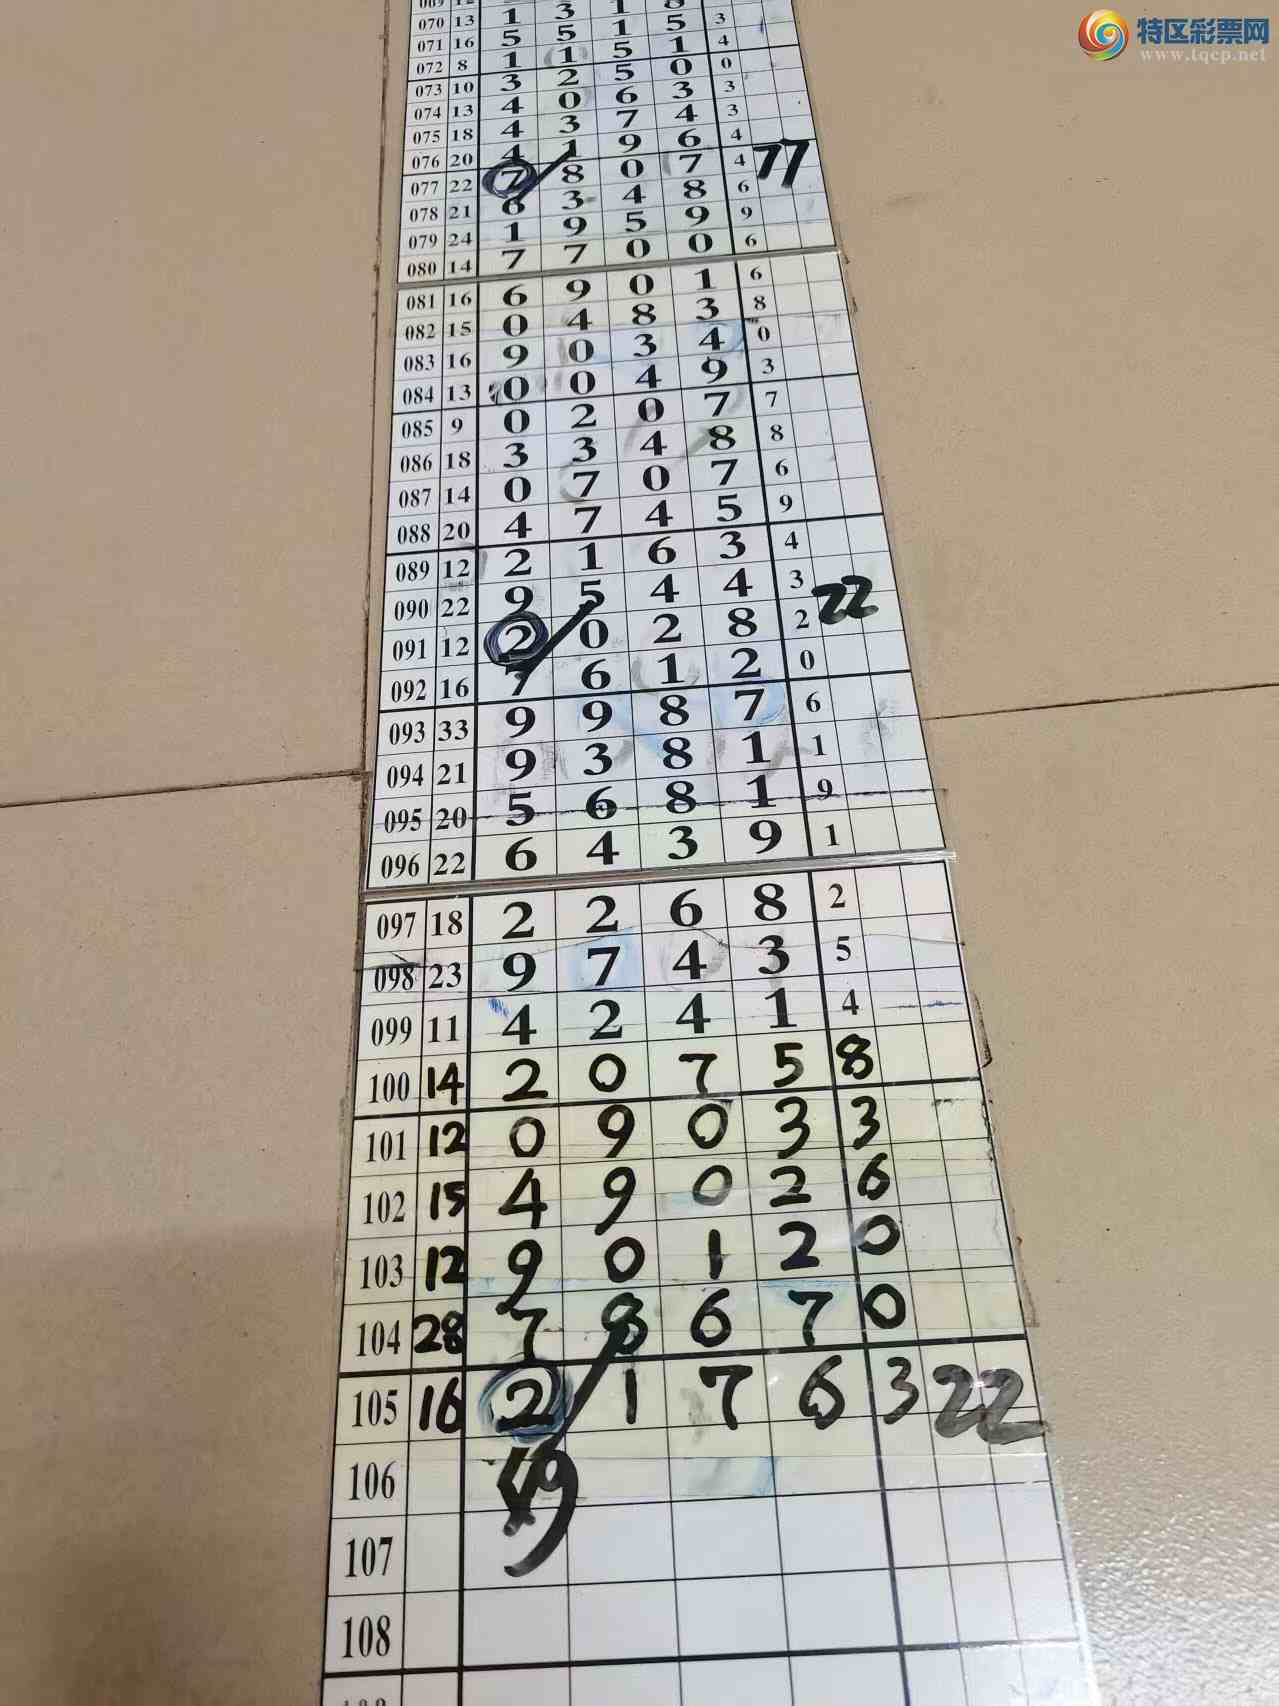 特区彩票网
www.tqcp.net
070 13 1 3 1 8 3
071 16 5 5 1 5 4
072 8 1 1 5 1 0
073 10 3 2 5 0 3
074 13 4 0 6 3 3
075 18 4 3 7 4 4
076 20 4 1 9 6 4
077 22 7 8 0 7 6 77
078 21 6 3 4 8 9
079 24 1 9 5 9 6
080 14 7 7 0 0
081 16 6 9 0 1 6
082 15 0 4 8 3 8
083 16 9 0 3 4 0
084 13 0 0 4 9 3
085 9 0 2 0 7 7
086 18 3 3 4 8 8
087 14 0 7 0 7 6
088 20 4 7 4 5 9
089 12 2 1 6 3 4
090 22 9 5 4 4 3
091 12 2 0 2 8 2 22
092 16 7 6 1 2 0
093 33 9 9 8 7 6
094 21 9 3 8 1 1
095 20 5 6 8 1 9
096 22 6 4 3 9 1
097 18 2 2 6 8 2
098 23 9 7 4 3 5
099 11 4 2 4 1 4
100 14 2 0 7 5 8
101 12 0 9 0 3 3
102 15 4 9 0 2 6
103 12 9 0 1 2 0
104 28 7 8 6 7 0
105 16 2 1 7 6 3 22
106 49
107
108